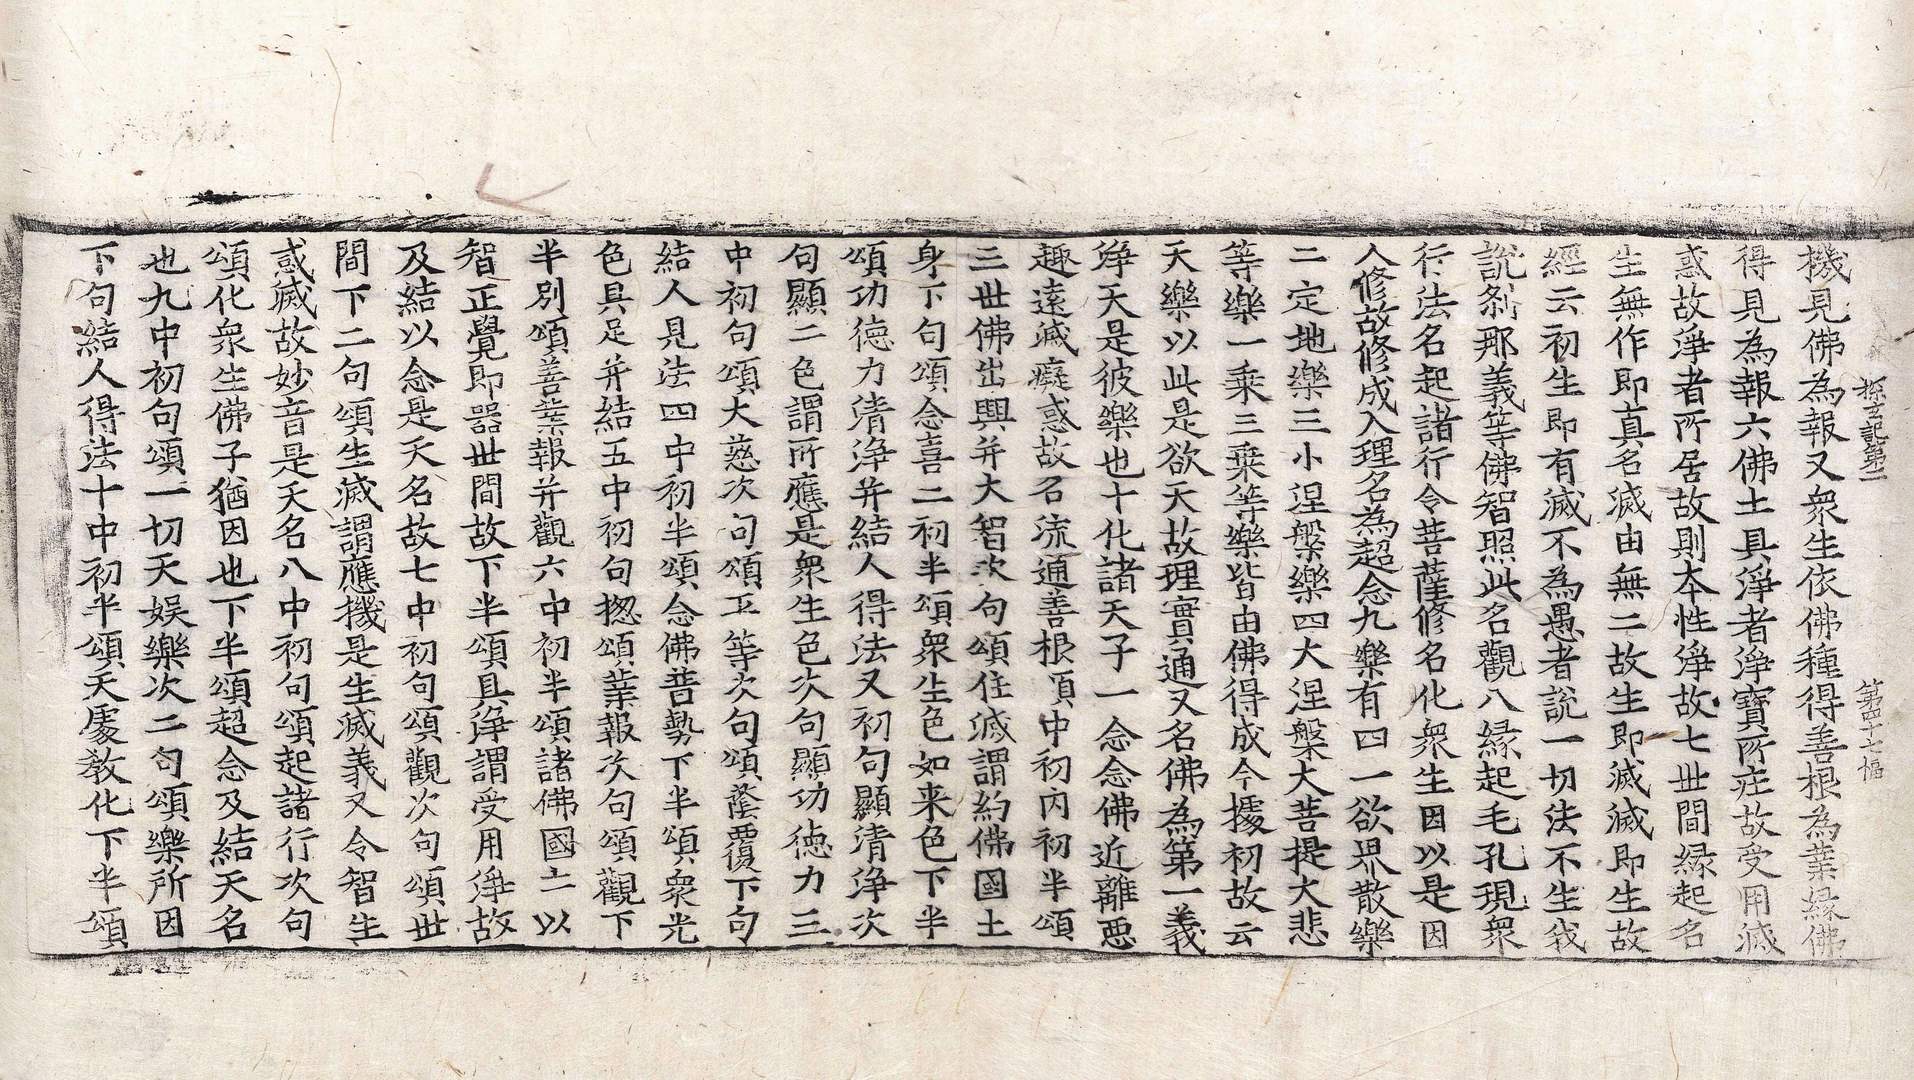 探玄記第二 第四十七幅
機見佛為報又衆生依佛種得善根為業緣佛
得見為報六佛土具淨者淨寶所莊故受用滅
惑故淨者所居故則本性淨故七世間緣起名
生無作即真名滅由無二故生即滅滅即生故
經云初生即有滅不為愚者說一切法不生我
說刹那義等佛智照此名觀八緣起毛孔現衆
行法名起諸行令菩薩修名化衆生因以是因
人修故修成入理名為超念九樂有四一欲界散樂
二定地樂三小涅槃樂四大涅槃大菩提大悲
等樂一乗三乗等樂皆由佛得成今據初故云
天樂以此是欲天故理實通又名佛為第一義
淨天是彼樂也十化諸天子一念念佛近離惡
趣遠滅癡惑故名流通善根頂中初内初半頌
三世佛出興并大智次句頌住滅謂約佛國土
身下句頌念喜二初半頌衆生色如来色下半
頌功德力清淨并結人得法又初句顯清淨次
句顯二色謂所應是衆生色次句顯功德力三
中初句頌大慈次句頌正等次句頌蔭覆下句
結人見法四中初半頌念佛普勢下半頌衆光
色具足并結五中初句揔頌業報次句頌觀下
半別頌善業報并觀六中初半頌諸佛國土以
智正覺即器世間故下半頌具淨謂受用淨故
及結以念是天名故七中初句頌觀次句頌世
間下二句頌生滅謂應機是生滅義又令智生
惑滅故妙音是天名八中初句頌起諸行次句
頌化衆生佛子猶因也下半頌超念及結天名
也九中初句頌一切天娯樂次二句頌樂所因
下句結人得法十中初半頌天處教化下半頌